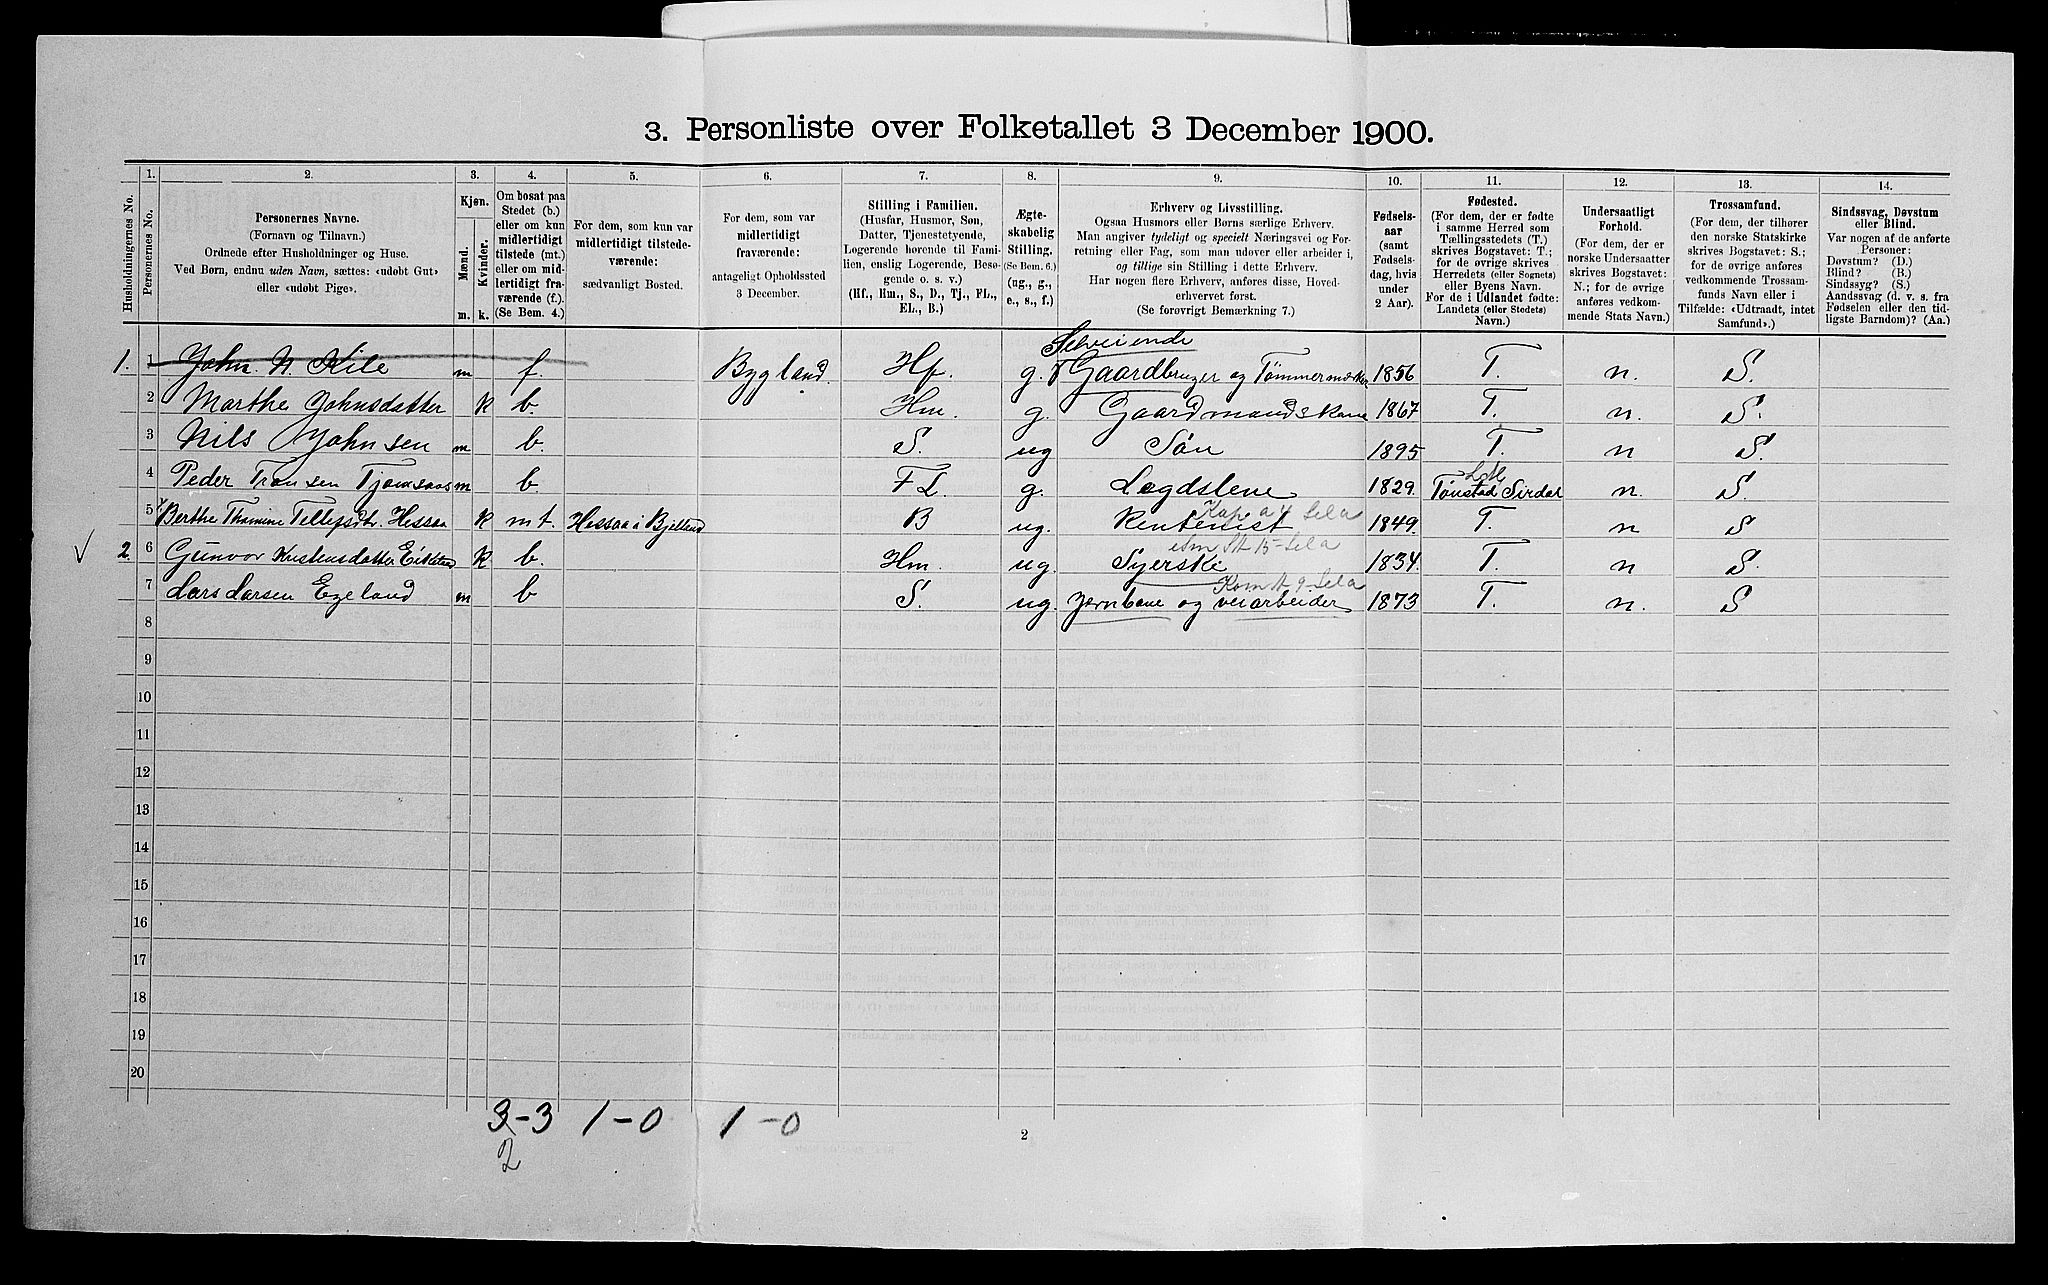 3. Personliste over Folketallet 3 December 1900.
Husholdningernes No.
1.
Personernes No.
2.
Personernes Navne.
(Fornavn og Tilnavn.)
Ordnede efter Husholdninger og Huse.
Ved Børn, endnu uden Navn, sættes: «udøbt Gut»
eller «udøbt Pige».
3.
Kjøn.
Mænd.
Kvinder.
m. k.
4.
Om bosat paa
Stedet (b.)
eller om kun
midlertidigt
tilstede (mt.)
eller om mid-
lertidigt fra-
værende (f.).
(Se Bem. 4.)
5.
For dem, som kun var
midlertidigt tilstede-
værende:
sædvanligt Bosted.
6.
For dem, som var
midlertidigt
fraværende:
antageligt Opholdssted
3 December.
7.
Stilling i Familien.
(Husfar, Husmor, Søn,
Datter, Tjenestetyende,
Logerende hørende til Fami-
lien, enslig Logerende, Besø-
gende o. s. v.)
(Hf., Hm., S., D., Tj., FL.,
EL., B.)
8.
Ægte-
skabelig
Stilling.
(Se Bem. 6.)
(ug., g.,
e., s., f.)
9.
Erhverv og Livsstilling.
Ogsaa Husmors eller Børns særlige Erhverv.
Man angiver tydeligt og specielt Næringsvei og For-
retning eller Fag, som man udøver eller arbeider i,
og tillige sin Stilling i dette Erhverv.
Har nogen flere Erhverv, anføres disse, Hoved-
erhvervet først.
(Se forøvrigt Bemærkning 7.)
10.
Fødsels-
aar
(samt
Fødsels-
dag, hvis
under
2 Aar).
11.
Fødested.
(For dem, der er fødte
i samme Herred som
Tællingsstedets (T.)
skrives Bogstavet: T.;
for de øvrige skrives
Herredets (eller Sognets)
eller Byens Navn.
For de i Udlandet fødte:
Landets (eller Stedets)
Navn.)
12.
Undersaatligt
Forhold.
(For dem, der er
norske Undersaatter
skrives Bogstavet:
N.; for de øvrige
anføres vedkom-
mende Stats Navn.)
13.
Trossamfund.
(For dem, der tilhører
den norske Statskirke
skrives Bogstavet: S.;
for de øvrige anføres
vedkommende Trossam-
funds Navn eller i
Tilfælde: «Udtraadt, intet
Samfund».)
14.
Sindssvag, Døvstum
eller Blind.
Var nogen af de anførte
Personer:
Døvstum? (D.)
Blind? (B.)
Sindssyg? (S.)
Aandssvag (d. v. s. fra
Fødselen eller den tid-
ligste Barndom)? (Aa.)
Selveiende
1. 1 John N Kile m f. Bygland. Hf. g. Gaardbruger og 1856 T. n. S.
2 Marthe Johnsdatter k b. Hm. g. Gaardmandskone 1867 T. n. S.
3 Nils Johnsen m b. S. ug Søn 1895 T. n S.
4 Peder m b. FL g. Legdslene 1829. Tonstad Sirdal n. S.
5 Berthe Thomine Hessaa k mt. Hessaa i Bjelland B ug. Rentenist 1849. T. n S
2. 6 Gunvor Kristensdatter k b. Hm. ug. Syerske 1834. T. n S.
7 Lars Larsen Egeland m b S. ug. Jernbane og veiarbeider 1873 T. n. S
8
9
10
11
12
13
14
15
16
17
18
19
20
3-3 1-0 1-0
2
2